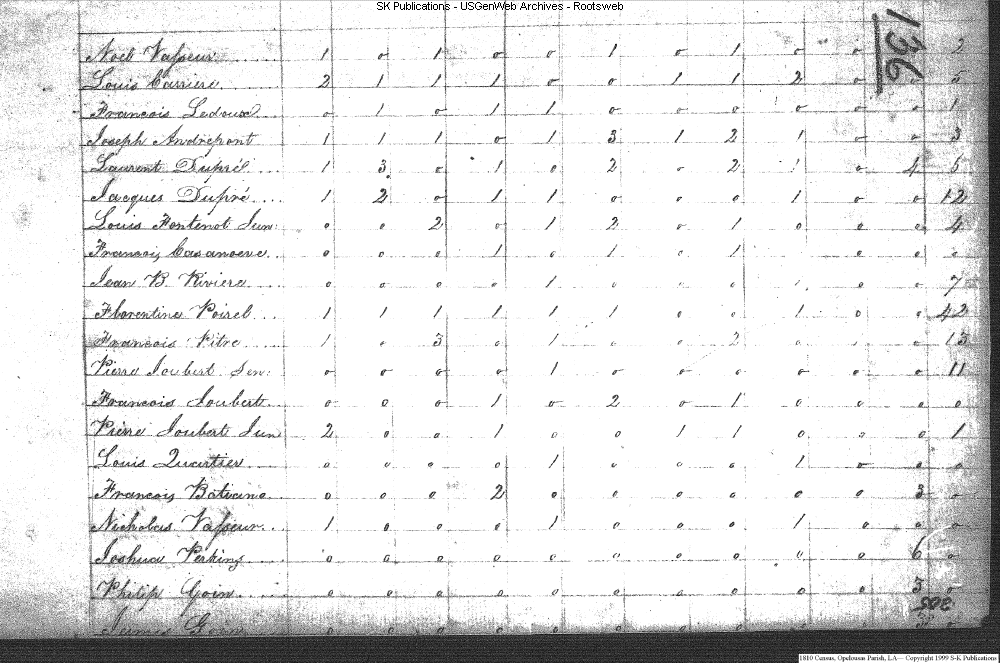 SK Publications - USGenWeb Archives - Rootsweb
136
Noël Vasseur 1 0 1 0 0 1 0 1 0 0 2
Louis Carriere 2 1 1 1 0 0 1 1 2 0 5
Francois Ledoux 0 1 0 1 1 0 0 0 0 0 1
Joseph Andrepont 1 1 1 0 1 3 1 2 1 0 3
Laurent Dupré 1 3 0 1 0 2 0 2 1 0 4 5
Jacques Dupré 1 2 0 1 1 0 0 0 1 0 0 12
Louis Fontenot Jun: 0 0 2 0 1 2 0 1 0 0 0 4
Francois Casanoeve 0 0 0 1 0 1 0 1 0 0 0
Jean B. Riviere 0 0 0 0 1 0 0 0 0 0 7
Florentine Poiret 1 1 1 1 1 1 0 0 1 0 0 42
Francois Pitre 1 0 3 0 1 0 0 2 0 0 0 13
Pierre Joubert Sen: 0 0 0 0 1 0 0 0 0 0 0 11
Francois Joubert 0 0 0 1 0 2 0 1 0 0 0 0
Pierre Joubert Jun 2 0 0 1 0 0 1 1 0 0 0 1
Louis Quartier 0 0 0 0 1 0 0 0 1 0 0 0
Francois 0 0 0 2 0 0 0 0 0 0 3 0
Nicholas Vasseur 1 0 0 0 1 0 0 0 1 0 0 0
Joshua Perkins 0 0 0 0 0 0 0 0 0 0 6 0
Philip Goin 0 0 0 0 0 0 0 0 0 0 3 0
James 0 0 0 0 0 0 0 0 0 0
1810 Census, Opelousas Parish, LA -- Copyright 1999 S-K Publications